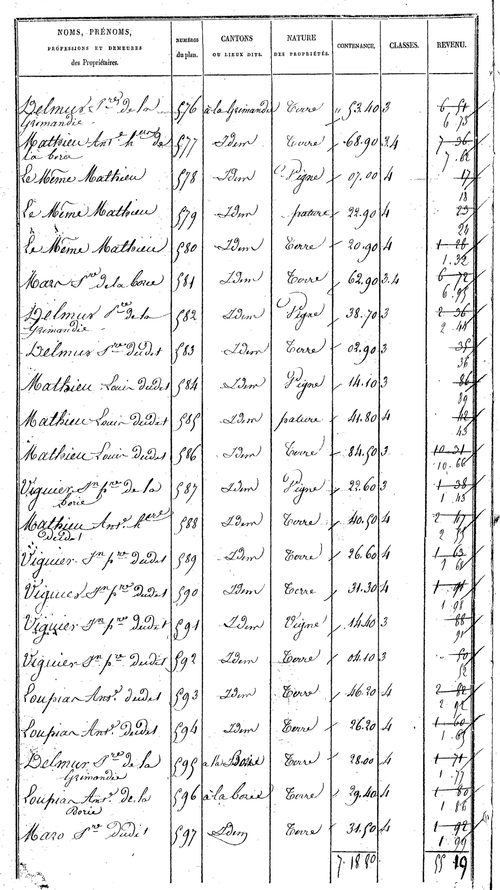 NOMS, PRÉNOMS, PROFESSIONS ET DEMEURES des Propriétaires. NUMÉROS du plan. CANTONS OU LIEUX DITS. NATURE DES PROPRIÉTÉS. CONTENANCE. CLASSES. REVENU.
Delmur P.re de la Grimandie 576 à la Grimandie Terre " 53.40 3 6 51
6 73
Mathieu Ant.e de la boria 577 Idem Terre 68.90 3.4 7 36
7 62
Le Même Mathieu 578 Idem Vigne 07.00 4 17
18
Le Même Mathieu 579 Idem pature 22.90 4 23
24
Le Même Mathieu 580 Idem Terre 20.90 4 1 28
1.32
Maro P.re de la borie 581 Idem Terre 62.90 3.4 6 72
6.95
Delmur P.re de la Grimandie 582 Idem Vigne 38.70 3 2 36
2 44
Delmur P.re dudit 583 Idem Terre 02.90 3 35
36
Mathieu Louis dudit 584 Idem Vigne 14.10 3 86
89
Mathieu Louis dudit 585 Idem pature 41.80 4 42
43
Mathieu Louis dudit 586 Idem Terre 84.50 3 10.31
10.66
Viguier J.n p.re de la borie 587 Idem Vigne 22.60 3 1 38
1.43
Mathieu Ant.e dudit 588 Idem Terre 40.50 4 2 47
2 55
Viguier J.n p.re dudit 589 Idem Terre 26.60 4 1 63
1 68
Viguier J.n p.re dudit 590 Idem Terre 31.30 4 1 91
1 98
Viguier J.n p.re dudit 591 Idem Vigne 14.40 3 88
91
Viguier J.n p.re dudit 592 Idem Terre 04.10 3 50
52
Loupiar Ant.e dudit 593 Idem Terre 46.20 4 2 82
2 92
Loupiar Ant.e dudit 594 Idem Terre 26.20 4 1 60
1.65
Delmur P.re de la Grimandie 595 a la Borie Terre 28.00 4 1 71
1.77
Loupiar Ant.e de la Borie 596 à la borie Terre 29.40 4 1 80
1 86
Maro P.re Dudit 597 Idem Terre 31.50 4 1 92
1 99
7.18 80 55 19